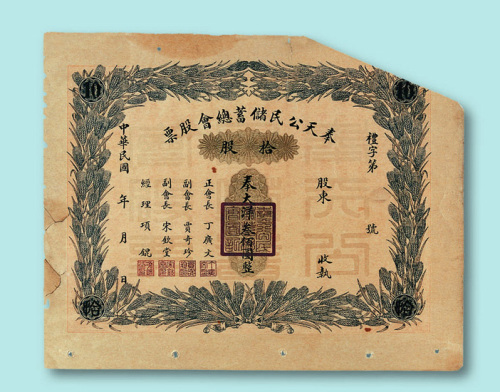 奉天公民儲蓄總會股票
拾股
禮字第 號
股東 收執
奉大洋叁佰圓整
正會長 丁廣文
副會長 賈奇珍
副會長 宋欽堂
經理 項錕
中華民國 年 月 日
10
10
拾
拾